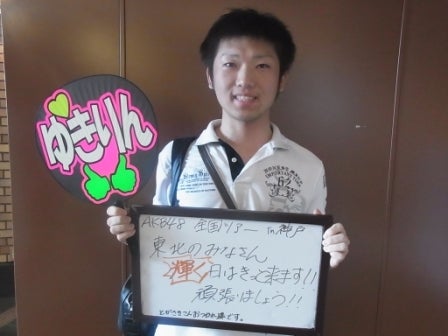 ゆきりん
AKB48 全国ツアー in神戸
東北のみなさん
輝く日はきっと来ます!!
頑張りましょう!!